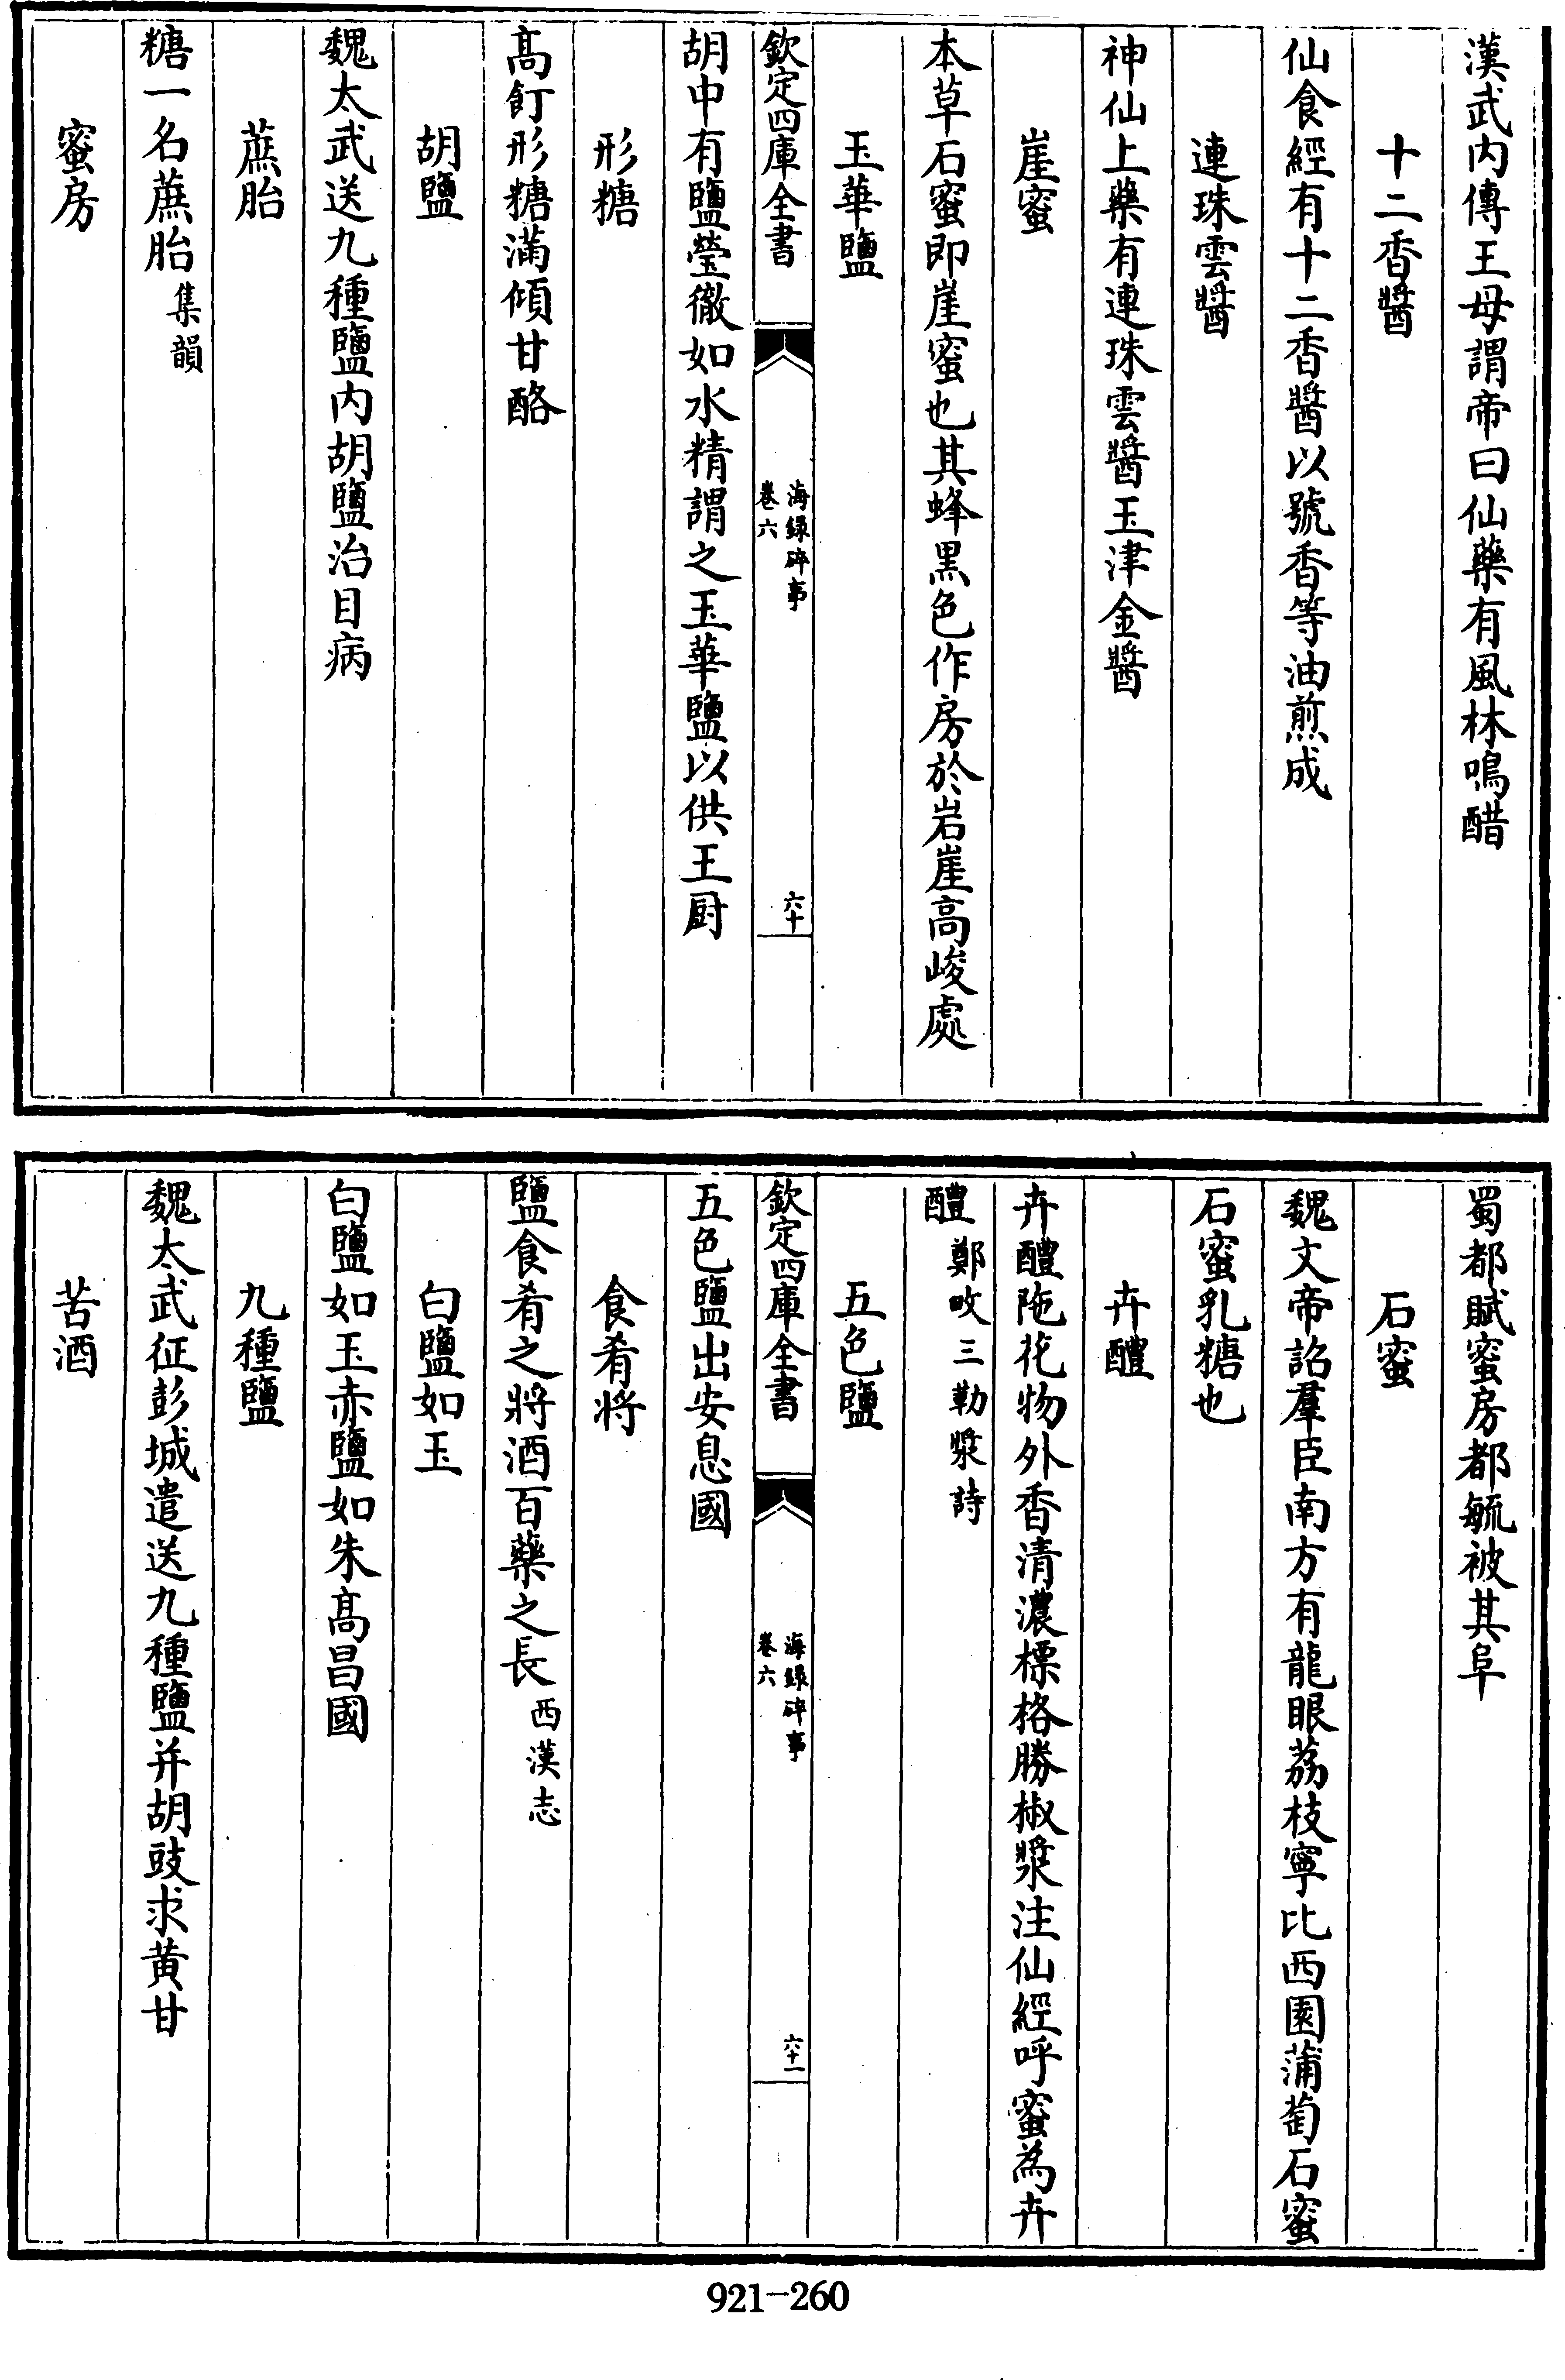 漢武内傳王母謂帝曰仙藥有風林鳴醋
十二香醬
仙食經有十二香醬以號香等油煎成
連珠雲醬
神仙上藥有連珠雲醬玉津金醬
崖蜜
本草石蜜即崖蜜也其蜂黒色作房於岩崖高峻處
玉華鹽
欽定四庫全書
海録碎事
卷六
六十
胡中有鹽瑩徹如水精謂之玉華鹽以供王厨
形糖
髙飣形糖滿傾甘酪
胡鹽
魏太武送九種鹽内胡鹽治目病
蔗胎
糖一名蔗胎集韻
蜜房
蜀都賦蜜房都毓被其阜
石蜜
魏文帝詔羣臣南方有龍眼荔枝寧比西園蒲萄石蜜
石蜜乳糖也
卉醴
卉醴陁花物外香清濃標格勝椒漿注仙經呼蜜為卉
醴鄭畋三勒漿詩
五色鹽
欽定四庫全書
海録碎事
卷六
六十一
五色鹽出安息國
食肴将
鹽食肴之將酒百藥之長西漢志
白鹽如玉
白鹽如玉赤鹽如朱髙昌國
九種鹽
魏太武征彭城遣送九種鹽并胡豉求黄甘
苦酒
921-260